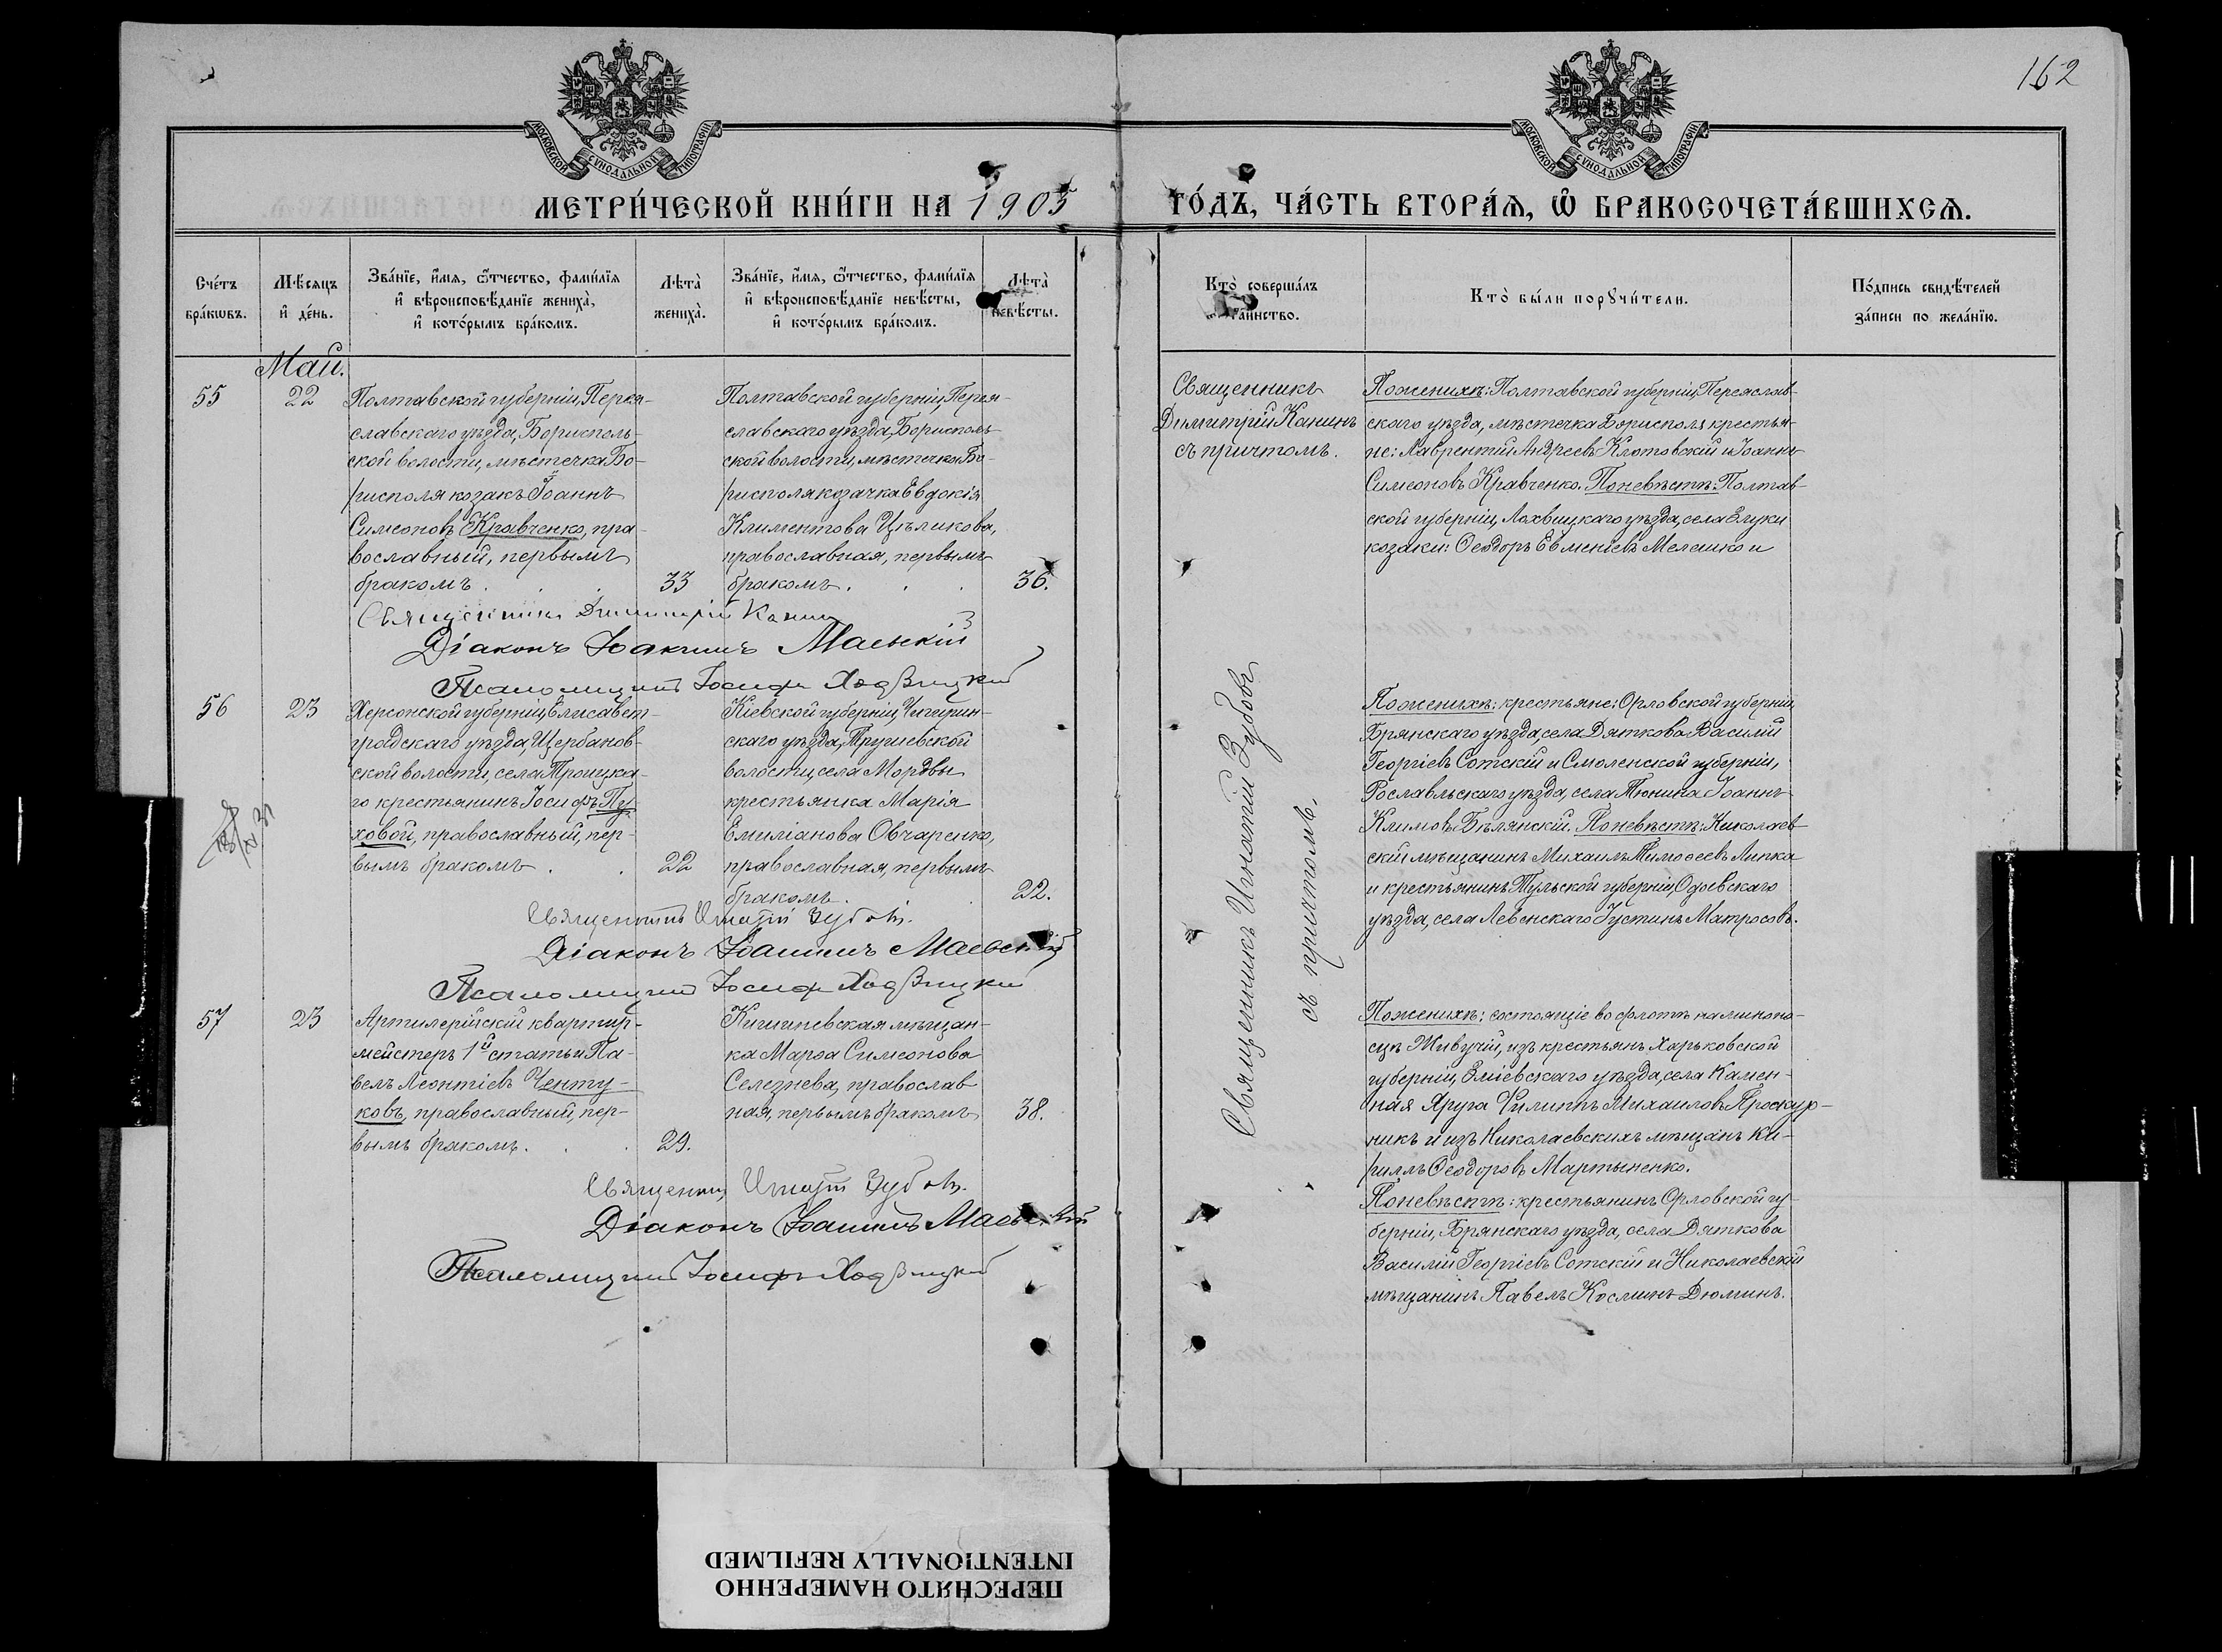 162
МОСКОВСКОЙ СѴНОДАЛЬНОЙ ТИПОГРАФІИ
МОСКОВСКОЙ СѴНОДАЛЬНОЙ ТИПОГРАФІИ
МЕТРИ́ЧЕСКОЙ КНИ́ГИ НА 1905 ГО́ДЪ, ЧА́СТЬ ВТОРА́Ѧ, Ѽ БРАКОСОЧЕТА́ВШИХСѦ.
Сче́тъ бра́кѡвъ.
Мѣ́сяцъ и҆ де́нь.
Зва́нїе, и҆́мя, ѻ҆́тчество, фами́лїя
и҆ вѣроисповѣ́данїе жениха̀,
и҆ кото́рымъ бра́комъ.
Лѣта̀ жениха̀.
Зва́нїе, и҆́мя, ѻ҆́тчество, фами́лїя
и҆ вѣроисповѣ́данїе невѣ́сты,
и҆ кото́рымъ бра́комъ.
Лѣта̀ невѣ́сты.
Кто̀ соверша́лъ таинство.
Кто̀ бы́ли порꙋчи́тели.
По́дпись свидѣ́телей
за́писи по жела́нїю.
Май.
55
22
Полтавской губерніи, Перея-
славскаго уѣзда, Борисполь-
ской волости, мѣстечка Бо-
рисполя козакъ Іоаннъ
Симеоновъ Кравченко, пра-
вославный, первымъ
бракомъ . . . 33
Полтавской губерніи, Перея-
славскаго уѣзда, Бориспольс-
кой волости, мѣстечка Бо-
рисполя козачка Евдокія
Климентова Цѣликова,
православная, первымъ
бракомъ . . . 36.
Священникъ
Димитрій Канинъ
съ причтомъ.
По женихѣ: Полтавской губерніи, Переяслав-
скаго уѣзда, мѣстечка Борисполя крестья-
не: Лаврентій Андреевъ Клотовскій и Іоаннъ
Симеоновъ Кравченко. По невѣстѣ: Полтав-
ской губерніи, Лохвицкаго уѣзда, села
козаки: Ѳеодоръ Евменіевъ Мелешко и
Священникъ Димитрій Канинъ
Діаконъ Іоакимъ Маевскій
Псаломщикъ Іосифъ Ходзицкій
56
23
Херсонской губерніи, Елисавет-
градскаго уѣзда, Щербанов-
ской волости, села Троицка-
го крестьянинъ Іосифъ Пу-
ховой, православный, пер-
вымъ бракомъ . . 22
Кіевской губерніи, Чигирин-
скаго уѣзда, Трушевской
волости, села Мордвы
крестьянка Марія
Емиліанова Овчаренко,
православная, первымъ
бракомъ . . 22.
Священникъ Игнатій Зубовъ
съ причтомъ.
По женихѣ: крестьяне: Орловской губерніи,
Брянскаго уѣзда, села Дяткова Василій
Георгіевъ Сотскій и Смоленской губерніи,
Рославльскаго уѣзда, села Тюнина Іоаннъ
Климовъ Бѣлянскій. По невѣстѣ: Николаев-
скій мѣщанинъ Михаилъ Тимоѳеевъ Липка
и крестьянинъ Тульской губерніи, Одоевскаго
уѣзда, села Левенскаго Іустинъ Матросовъ.
Священникъ Игнатій Зубовъ.
Діаконъ Іоакимъ Маевскій
Псаломщикъ Іосифъ Ходзицкій
57
23
Артилерійскій квартир-
мейстеръ 1й статьи Па-
велъ Леонтіевъ Ченту-
ковъ, православный, пер-
вымъ бракомъ . . . 29.
Кишиневская мѣщан-
ка Марѳа Симеонова
Селезнева, православ-
ная, первымъ бракомъ 38.
По женихѣ: состоящіе во флотѣ на миноно-
сцѣ Живучій, изъ крестьянъ Харьковской
губерніи, Зміевскаго уѣзда, села Камен-
ная Яруга Филиппъ Михаиловъ Проскур-
никъ и изъ Николаевскихъ мѣщанъ Ки-
риллъ Ѳеодоровъ Мартыненко.
По невѣстѣ: крестьянинъ Орловской гу-
берніи, Брянскаго уѣзда, села Дяткова
Василій Георгіевъ Сотскій и Николаевскій
мѣщанинъ Павелъ Косминъ Дюминъ.
Священникъ Игнатій Зубовъ.
Діаконъ Іоакимъ Маевскій
Псаломщикъ Іосифъ Ходзицкій
ПЕРЕСНЯТО НАМЕРЕННО
INTENTIONALLY REFILMED